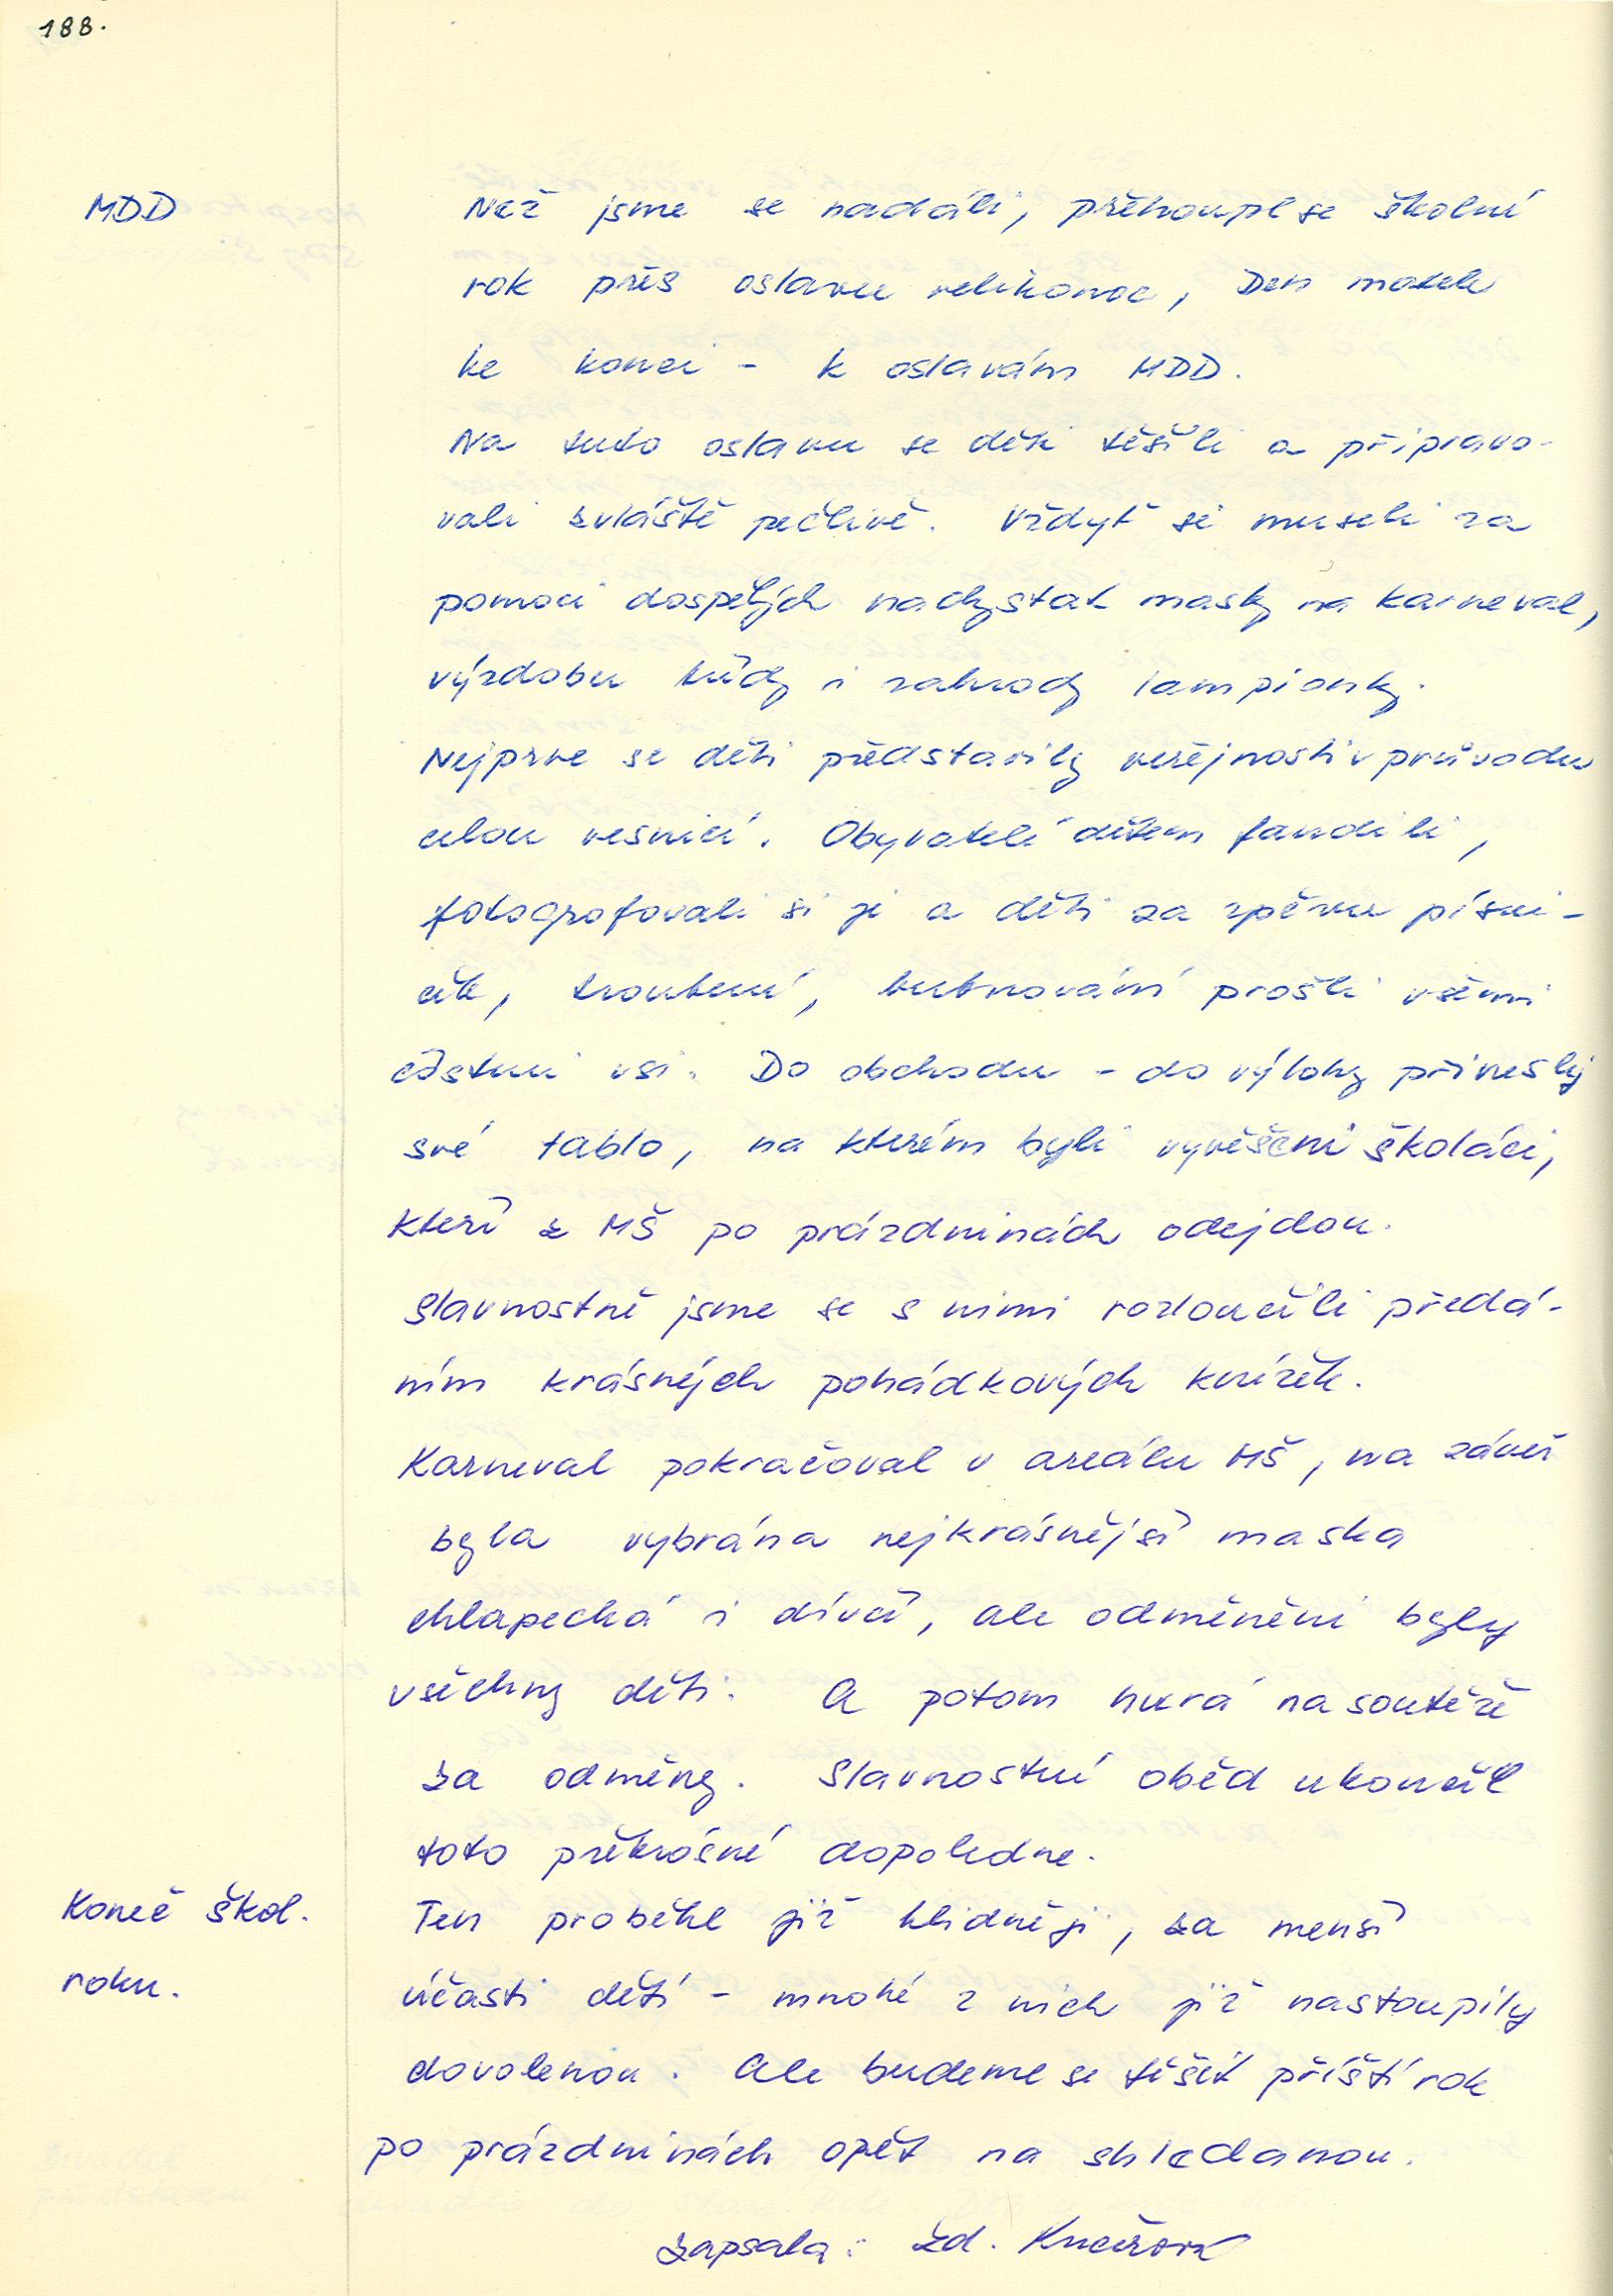 188.
MDD
Než jsme se nadáli, přehoupl se školní
rok přes oslavu velikonoc, Den matek
ke konci - k oslavám MDD.
Na tuto oslavu se děti těšili a připravo-
vali zvláště pečlivě. Vždyť si museli za
pomoci dospělých nachystat masky na karneval,
výzdobu třídy i zahrady lampionky.
Nejprve se děti představily veřejnosti v průvodu
celou vesnicí. Obyvatelé dětem fandili,
fotografovali si je a děti za zpěvu písni-
ček, troubení, bubnování prošli všemi
částmi vsi. Do obchodu - do výlohy přinesly
své tablo, na kterém byli vyvěšeni školáci,
kteří z MŠ po prázdninách odejdou.
Slavnostně jsme se s nimi rozloučili předá-
ním krásných pohádkových knížek.
Karneval pokračoval v areálu MŠ, na závěr
byla vybrána nejkrásnější maska
chlapecká i dívčí, ale odměněni byly
všechny děti. A potom hurá na soutěže
za odměny. Slavnostní oběd ukončil
toto překrásné dopoledne.
Koneč škol.
roku.
Ten proběhl již klidněji, za menší
účasti dětí - mnohé z nich již nastoupily
dovolenou. Ale budeme se těšit příští rok
po prázdninách opět na shledanou.
Zapsala: Zd.